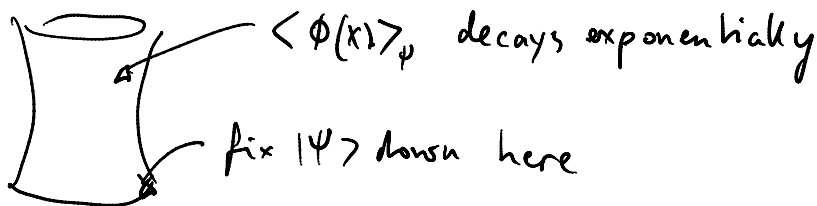 <ϕ(x)>ψ decays exponentially
fix |Ψ> down here